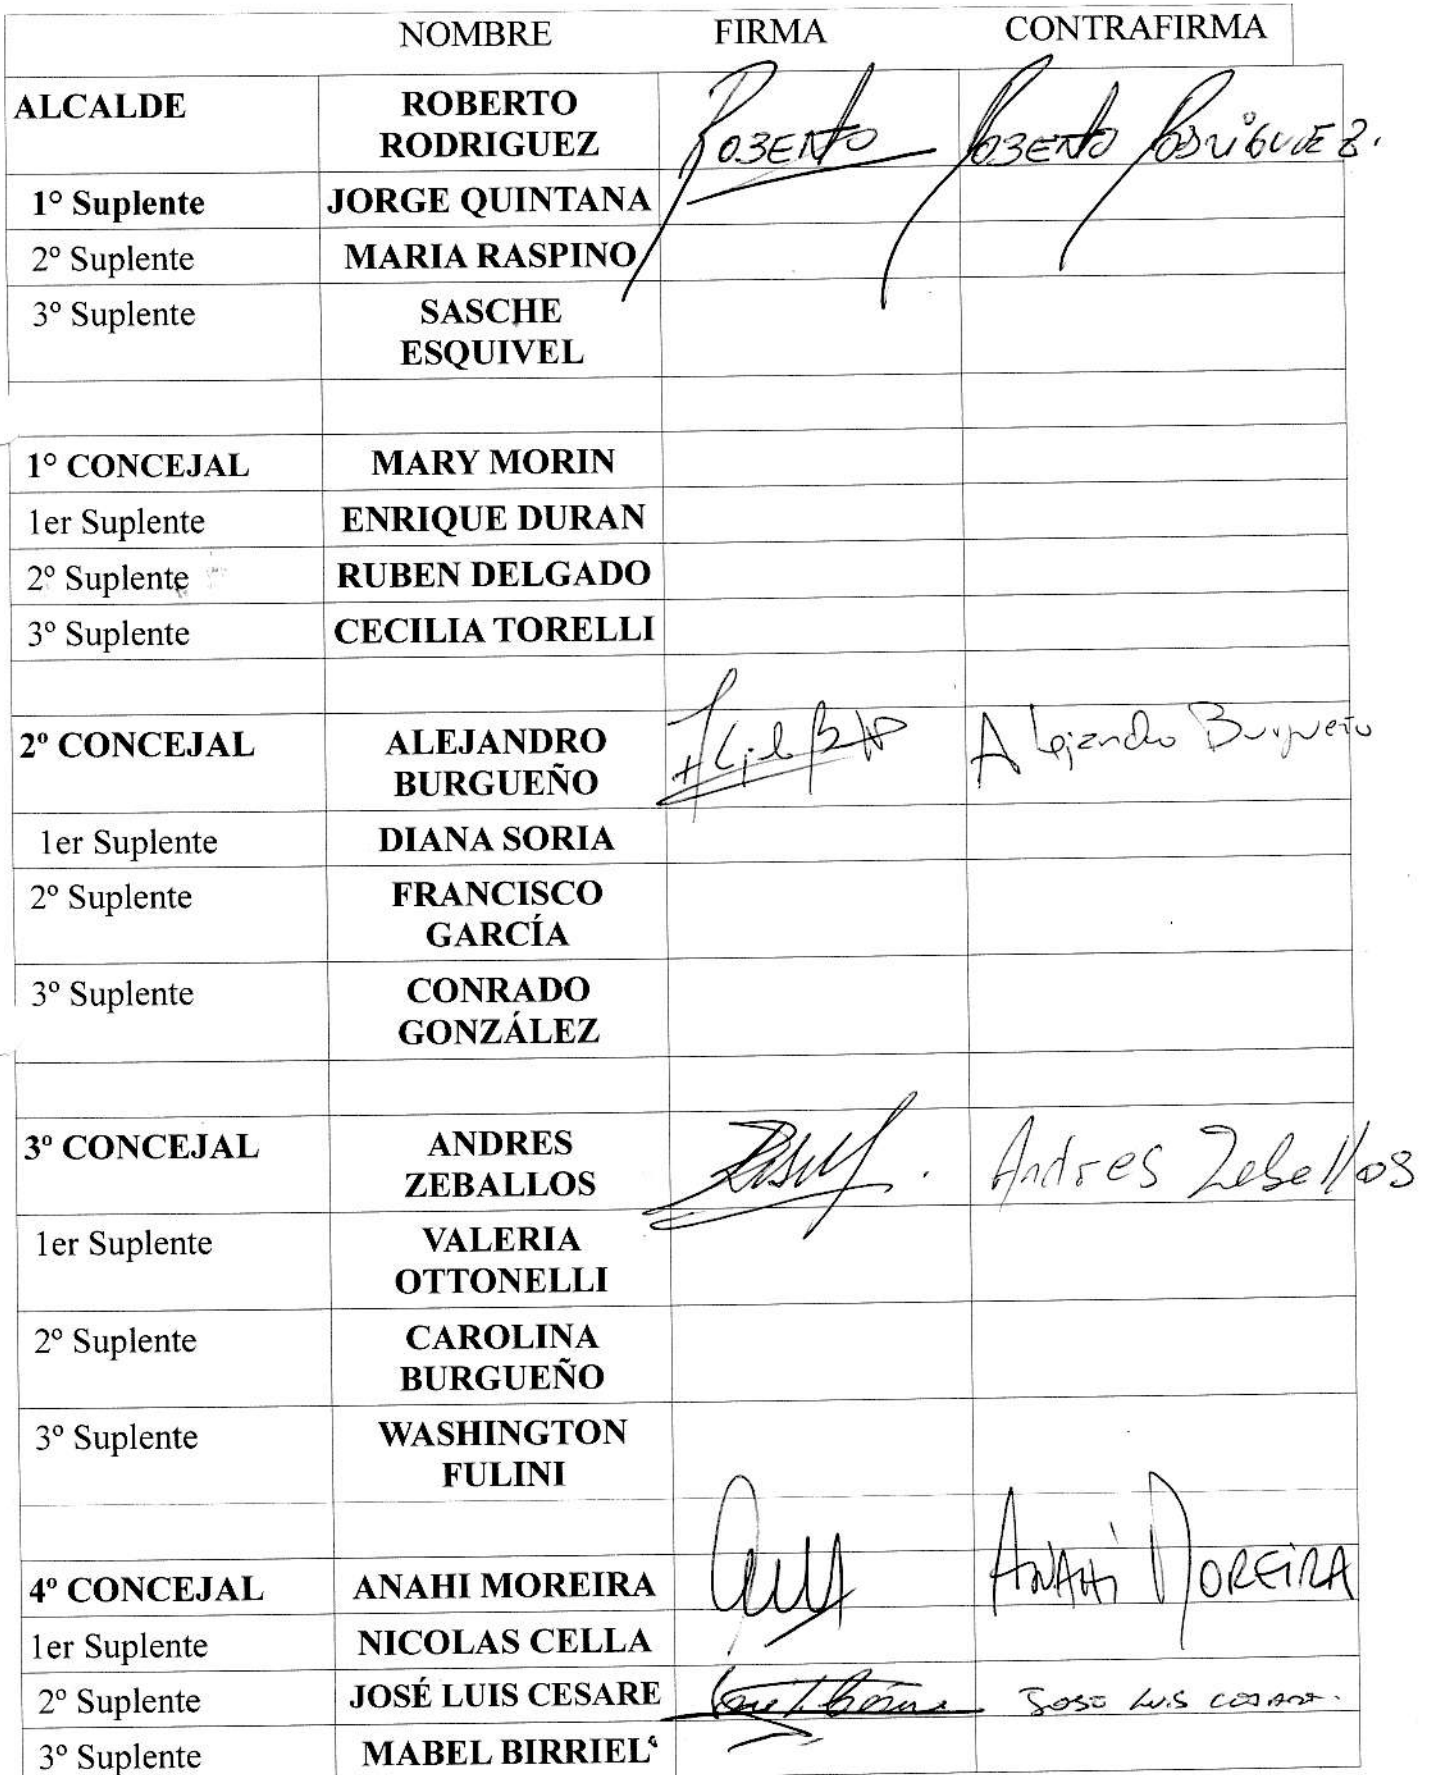 NOMBRE FIRMA CONTRAFIRMA
ALCALDE ROBERTO Roberto Roberto Rodriguez.
RODRIGUEZ
1° Suplente JORGE QUINTANA
2º Suplente MARIA RASPINO
3º Suplente SASCHE
ESQUIVEL
1° CONCEJAL MARY MORIN
1er Suplente ENRIQUE DURAN
2º Suplente RUBEN DELGADO
3º Suplente CECILIA TORELLI
2º CONCEJAL ALEJANDRO Alejandro Burgueño
BURGUEÑO
1er Suplente DIANA SORIA
2º Suplente FRANCISCO
GARCÍA
3º Suplente CONRADO
GONZÁLEZ
3º CONCEJAL ANDRES Andres Zeballos
ZEBALLOS
1er Suplente VALERIA
OTTONELLI
2º Suplente CAROLINA
BURGUEÑO
3º Suplente WASHINGTON
FULINI
4º CONCEJAL ANAHI MOREIRA ANAHÍ MOREIRA
1er Suplente NICOLAS CELLA
2º Suplente JOSÉ LUIS CESARE JOSE LUIS
3º Suplente MABEL BIRRIEL